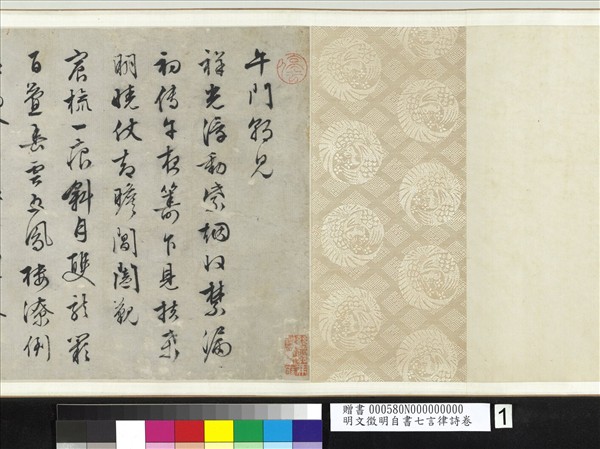 午門朝見
祥光浮動紫烟收禁漏
初傳午夜籌乍見扶桑
明曉仗瞻閶闔觀
宸旒一痕斜月雙龍闕
百疊春雲五鳳樓潦倒
贈書 000580N000000000
明文徵明自書七言律詩卷
1